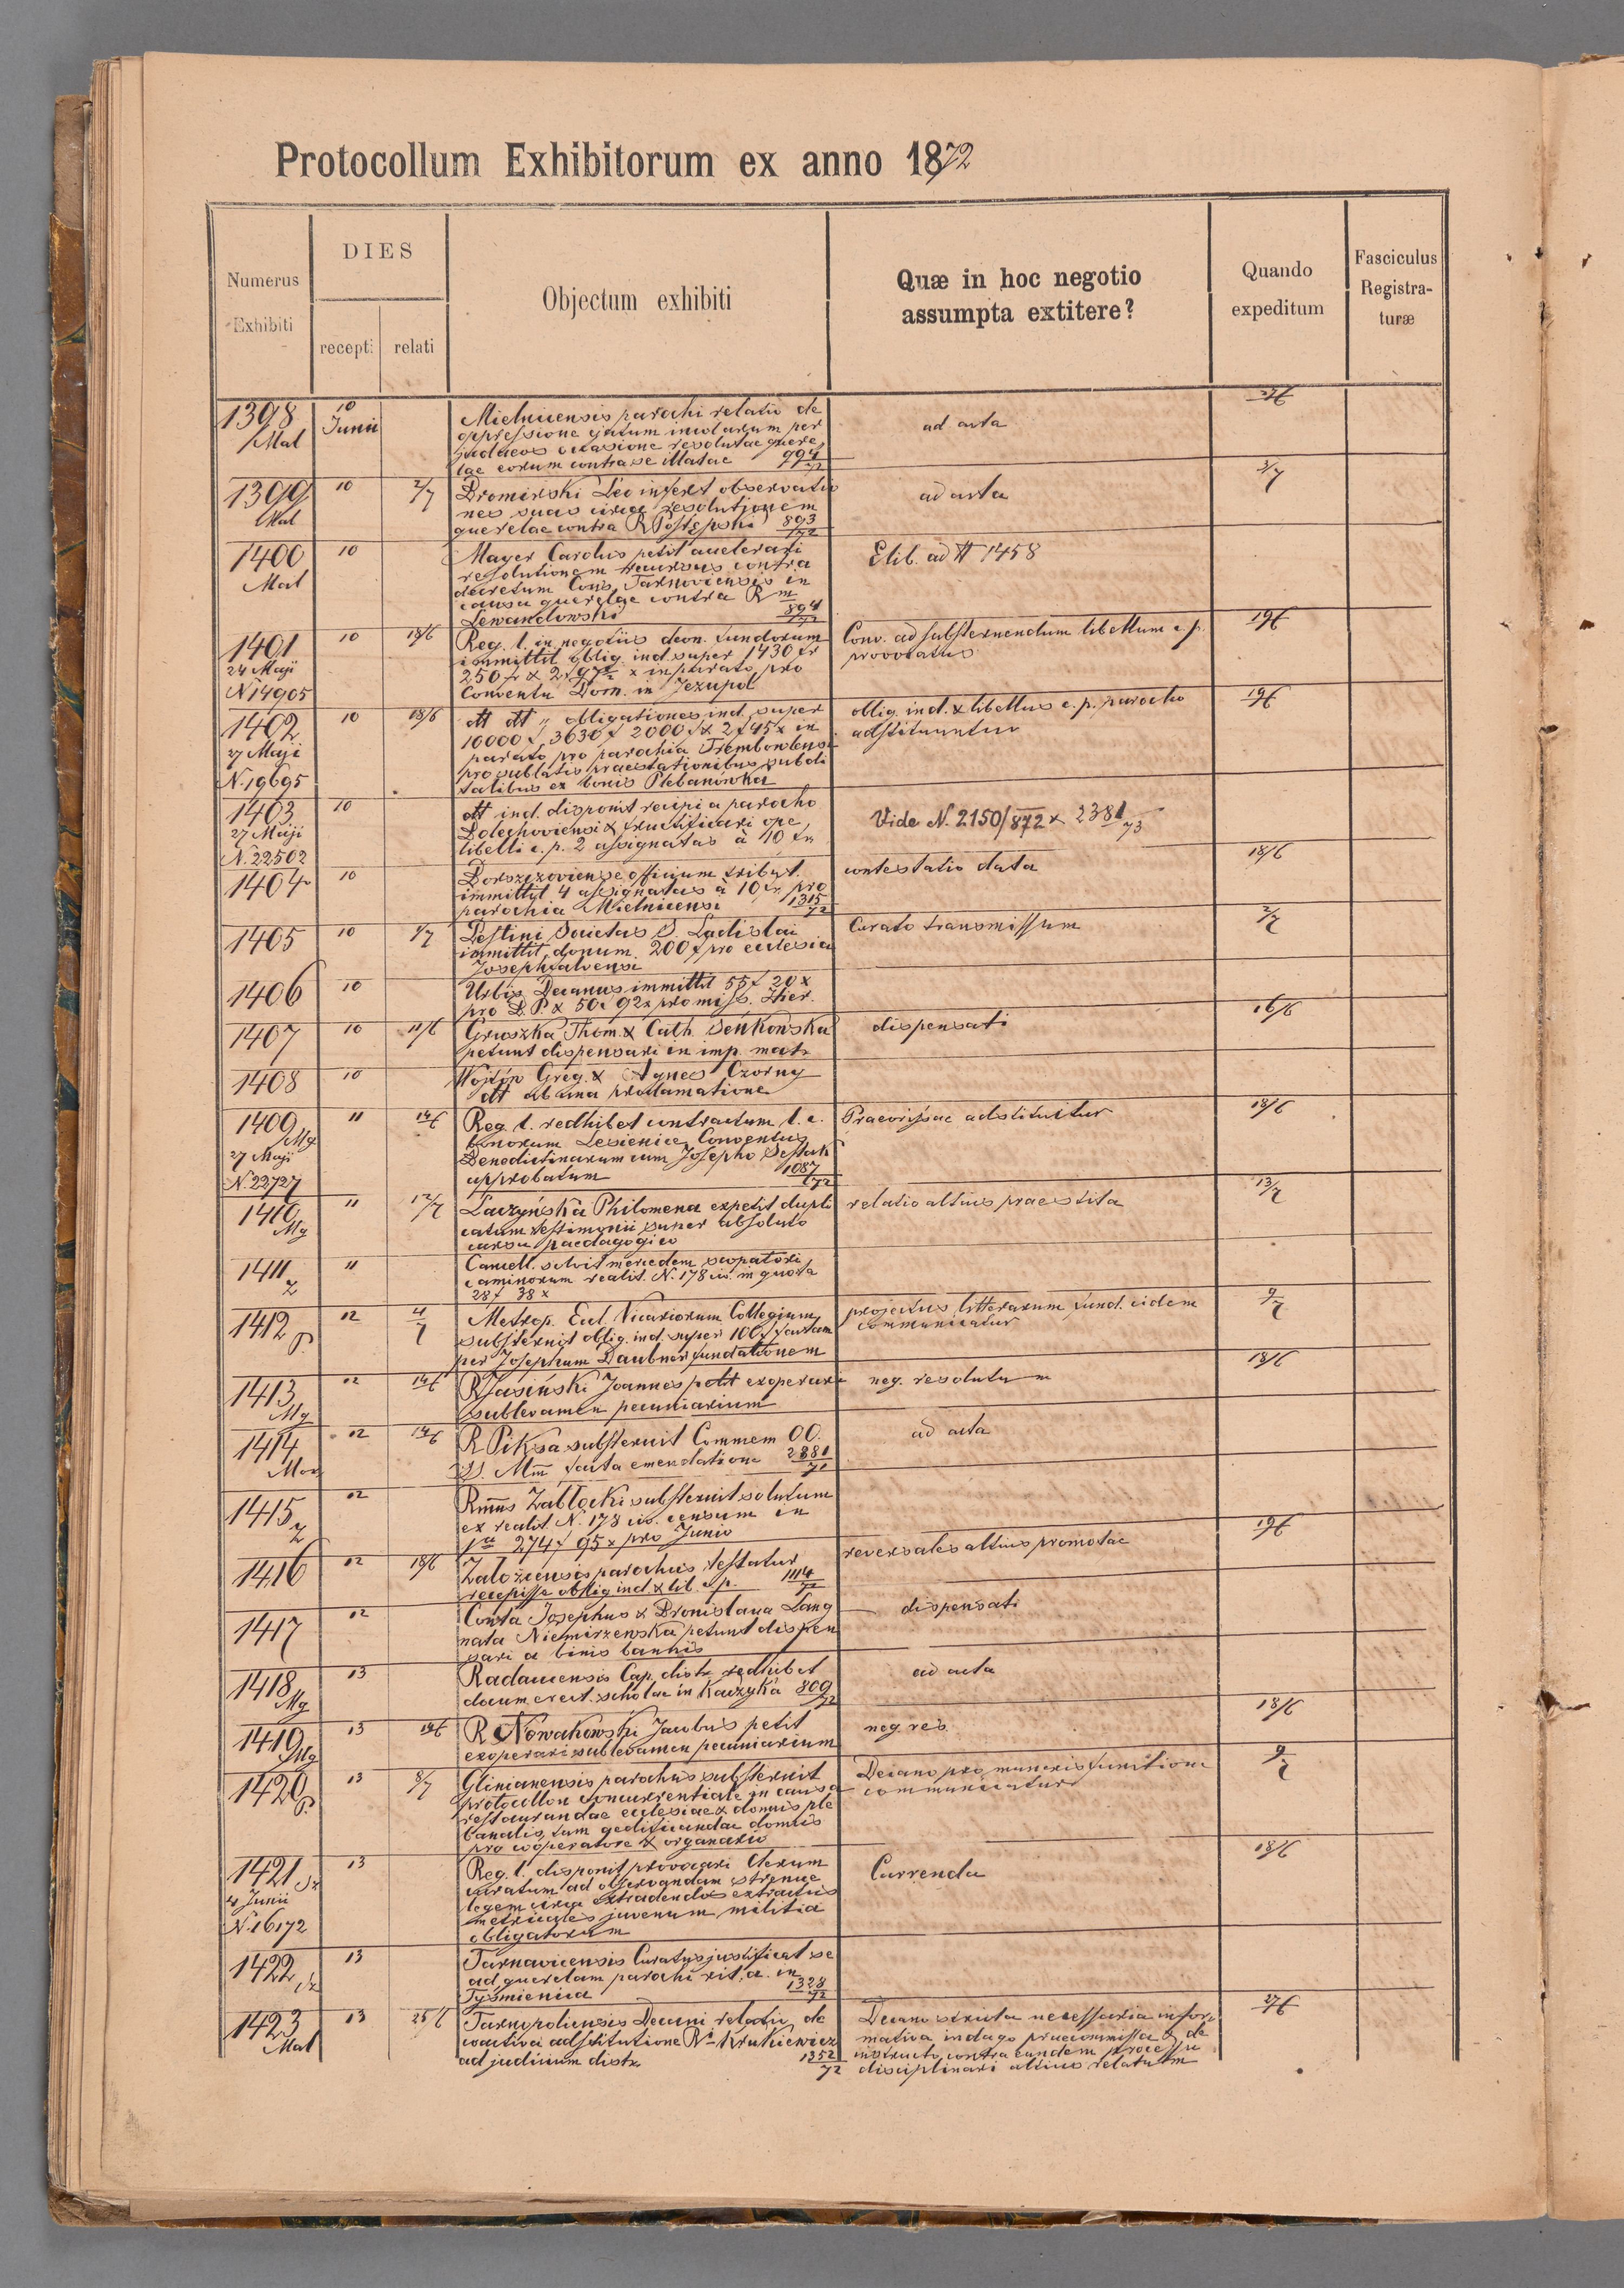 Protocollum Exhibitorum ex anno 1872
Numerus Exhibiti
DIES
recepti
relati
Objectum exhibiti
Quæ in hoc negotio assumpta extitere?
Quando expeditum
Fasciculus Registra-turæ
1398 10
Mal Junii
Mielnicensis parochi relatio de
oppressione jurium incolarum per
judaeos occasione resolutae quere
lae eorum contra se illatae 994/72
ad acta
1399 10 2/7
Mal
Dromirski Leo infert observatio
nes suas circa resolutionem
querelae contra R Postępski 893/72
ad acta
3/7
1400 10
Mal
Mayer Carolus petit accelerari
resolutionem recursus contra
decretum Cons. Tarnoviensis in
causa querelae contra Rm
Lewandowski 894/72
Elib. ad # 1458
1401 10 18/6
24 Maji
N 14905
Reg. l. in negotiis deon. fundorum
immittit oblig. ind. super 1430 fr
250 fr & 2 f 97 x in parato pro
Conventu Dom. in Jezupol
Conv. ad substernendum libellum c. p.
provocatus
19/6
1402 10 18/6
27 Maji
N. 19695
dt dt obligationes ind. super
10000 f, 3630 f 2000 f & 2 f 45 x in
parato pro parochia Trembowlensi
pro sublatis praestationibus subdi
talibus ex bonis Plebanówka
oblig. ind. & libellus c. p. parocho
adstituuntur
19/6
1403 10
27 Maji
N. 22502
dt ind. disponit recipi a parocho
Dolechoviensi & fructificari ope
libelli c. p. 2 assignatas à 10 fr
Vide N. 2150/872 & 2381/73
1404 10
Borszczoviense officium tribut.
immittit 4 assignatas à 10 fr pro
parochia Mielnicensi 1315/72
contestatio data
18/6
1405 10 1/7
Pestini Societas S. Ladislai
immittit donum 200 f pro ecclesia
Josephfalvensi
Curato transmissum
2/7
1406 10
Urbis Decanus immittit 55 f 20 x
pro D. P. & 50 f 92 x pro miss. Hier.
1407 10 11/6
Gruszka Thom. & Cath. Seńkowska
petunt dispensari in imp. matr
dispensati
16/6
1408 10
Wojtón Greg. & Agnes Czorny
dt ab una proclamatione
1409 11 14/6
Mg
27 Maji
N. 22727
Reg. l. redhibet contractum l. c.
bonorum Lesienice Conventus
Benedictinarum cum Josepho Sestak
approbatum 1087/72
Praevrissae adstituitur
18/6
1410 11 12/7
Mg
Laczyńska Philomena expetit dupli
catum testimonii super absoluto
cursu paedagogico
relatio altius praestita
13/7
1411 11
z
Cancell. solvit mercedem scopatori
caminorum realit. N. 178 in quota
28 f 38 x
1412 12 4/7
P.
Metrop. Eccl. Vicariorum Collegium
substernit oblig. ind. super 100 f factam
per Josephum Daubner fundationem
projectus litterarum fund. eidem
communicatur
9/7
1413 12 14/6
Mg
R Jasiński Joannes petit exoperari
sublevamen pecuniarium
neg. resolutum
18/6
1414 12 14/6
Mor
R Piksa substernit Commem OO.
D. Mm facta emendatione 2881/71
ad acta
1415 12
z
Rmus Zabłocki substernit solutum
ex realit. N. 178 censum in
274 f 95 x pro Junio
1416 12 18/6
Założiensis parochus testatur
recepisse oblig ind. & lib. c. p. 1114/72
reversales altius promotae
19/6
1417 12
Conta Josephus & Bronislava Lang
nata Niemirzewska petunt dispen
sari a binis bannis
dispensati
1418 13
Mg
Radaucensis Cap. distr redhibet
docum erect. scholae in Kaczyka 809/72
ad acta
1419 13 14/6
Mg
R Nowakowski Jacobus petit
exoperari sublevamen pecuniarium
neg. res.
18/6
1420 13 8/7
P.
Glinianensis parochus substernit
protocollon concurrentiale in causa
restaurandae ecclesiae & domus ple
banalis, tum aedificandae domus
pro cooperatore & organario
Decano pro muneris functione
communicatur
9/7
1421 13
4 Junii
N. 16172
Reg. l. disponit provocari Clerum
curatum ad observandam strenue
legem circa extradendos extractus
metricales juvenum militia
obligatorum
Currenda
18/6
1422 13
Tarnavicensis Curatus justificat se
ad querelam parochi rit. a. in
Tyśmienica 1328/72
1423 13 25/6
Mal
Tarnopoliensis Decani relatio de
coactiva adstitutione R Krukiewicz
ad judicium distr. 1352/72
Decano scruta necessaria infor
mativa indago praecommissa & de
instructo contra eundem processu
disciplinari altius relatum
27/6